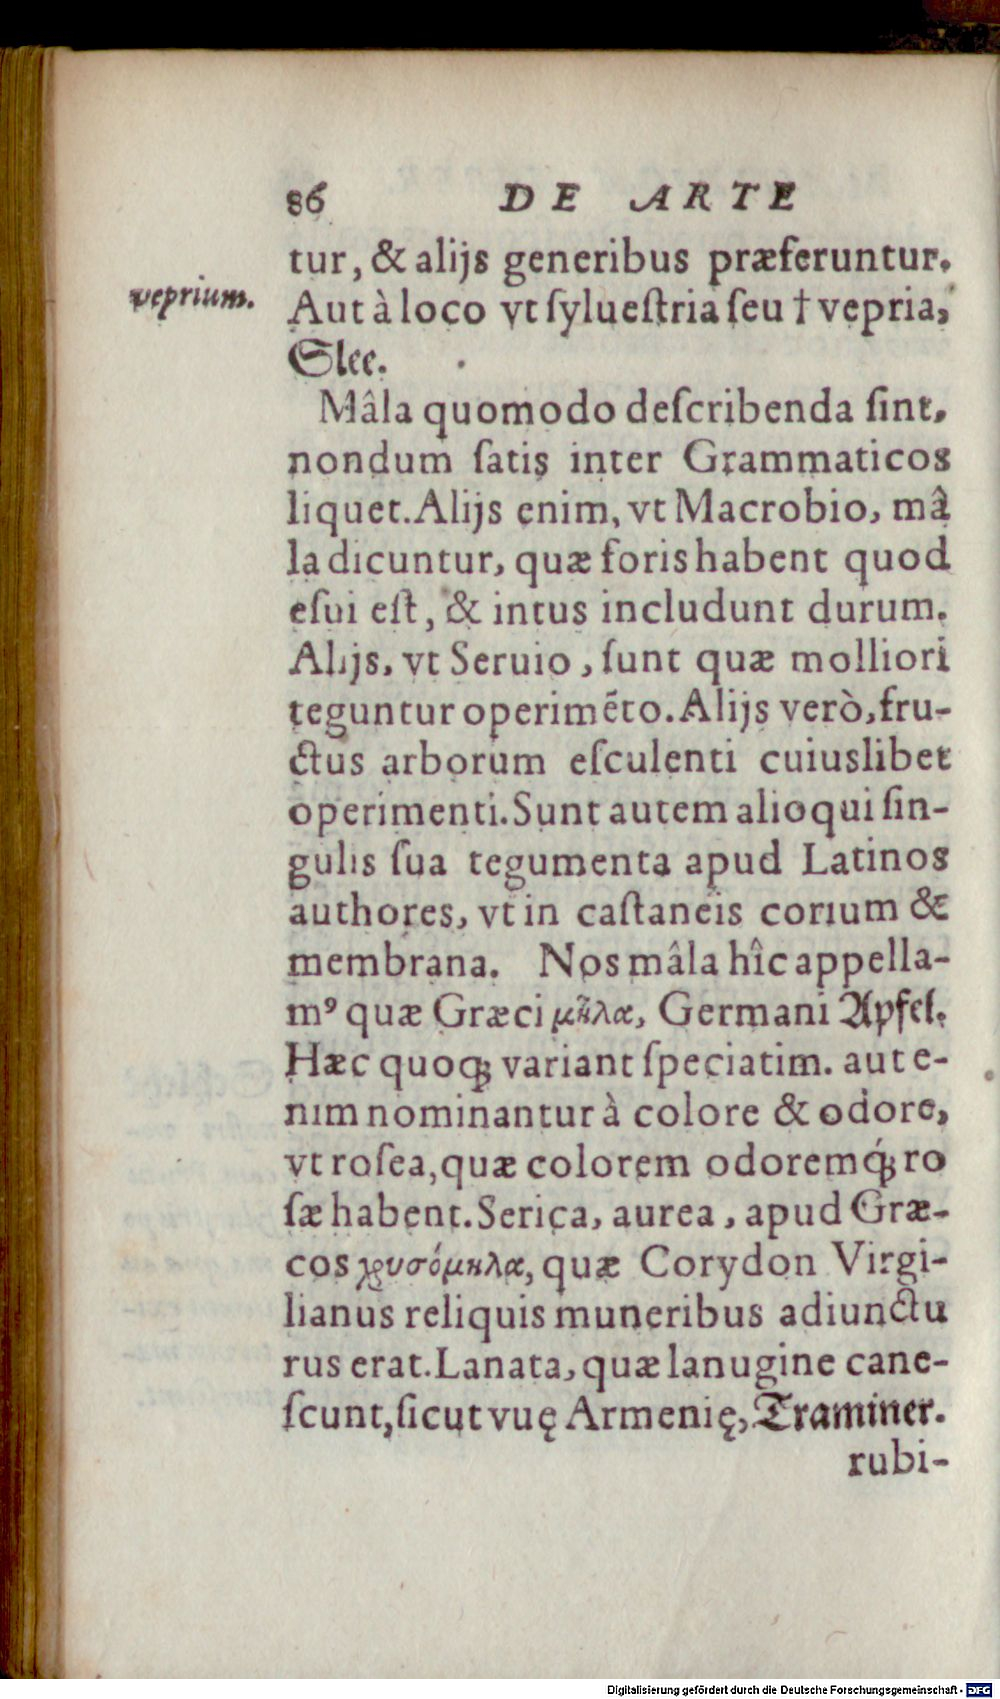 86 DE ARTE
tur, & alijs generibus præferuntur.
veprium.
Aut à loco vt sylueſtria ſeu † vepria,
Slee.
Mâla quomodo deſcribenda ſint,
nondum ſatis inter Grammaticos
liquet. Alijs enim, vt Macrobio, mâ
la dicuntur, quæ foris habent quod
eſui eſt, & intus includunt durum.
Alijs, vt Seruio, ſunt quæ molliori
teguntur operimẽto. Alijs verò, fru-
ctus arborum eſculenti cuiuslibet
operimenti. Sunt autem alioqui ſin-
gulis ſua tegumenta apud Latinos
authores, vt in caſtaneis corium &
membrana. Nos mâla hîc appella-
mꝰ quæ Græci μῆλα, Germani Apfel.
Hæc quoq; variant ſpeciatim. aut e-
nim nominantur à colore & odore,
vt roſea, quæ colorem odoremq́; ro
ſæ habent. Serica, aurea, apud Græ-
cos χρυσόμηλα, quæ Corydon Virgi-
lianus reliquis muneribus adiunctu
rus erat. Lanata, quæ lanugine cane-
ſcunt, ſicut vuę Armenię, Traminer.
rubi-
Digitalisierung gefördert durch die Deutsche Forschungsgemeinschaft - DFG